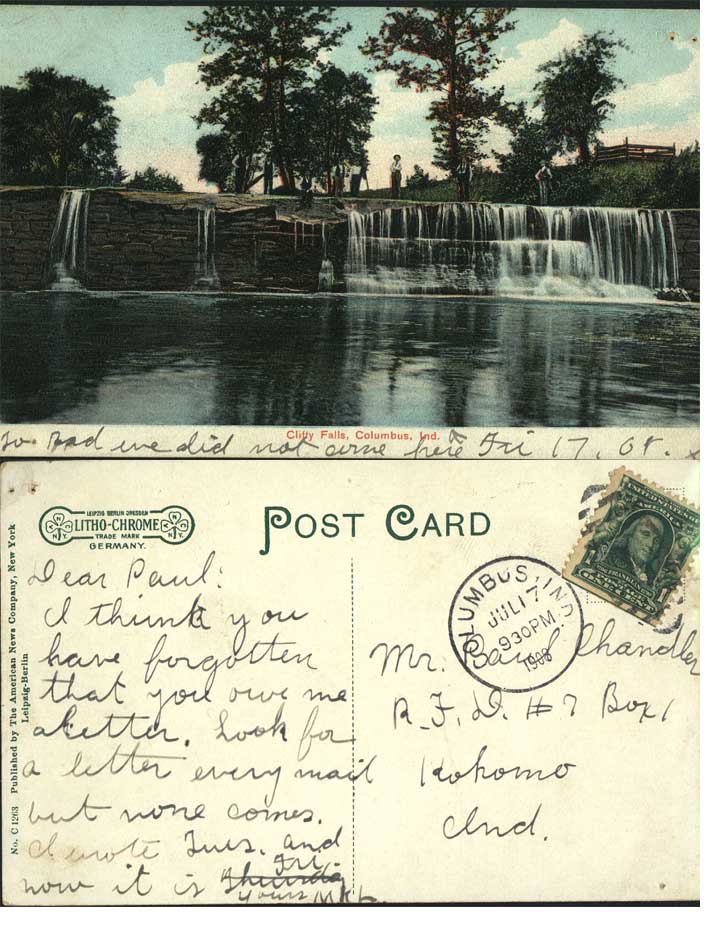 Clifty Falls, Columbus, Ind.
So Bad we did not come here Fri 17, 08.
LEIPZIG BERLIN DRESDEN
LITHO-CHROME
TRADE MARK
GERMANY.
POST CARD
No. C 1263 Published by The American News Company, New York
Leipzig-Berlin
Dear Paul:
I think you
have forgotten
that you owe me
a letter. Look for
a letter every mail
but none comes.
I wrote Tues. and
Fri.
now it is Thursday
yours
COLUMBUS, IND.
JUL 17
930PM
1908
Mr. Paul Chandler
R.F.D. #7 Box 1
Kokomo
Ind.